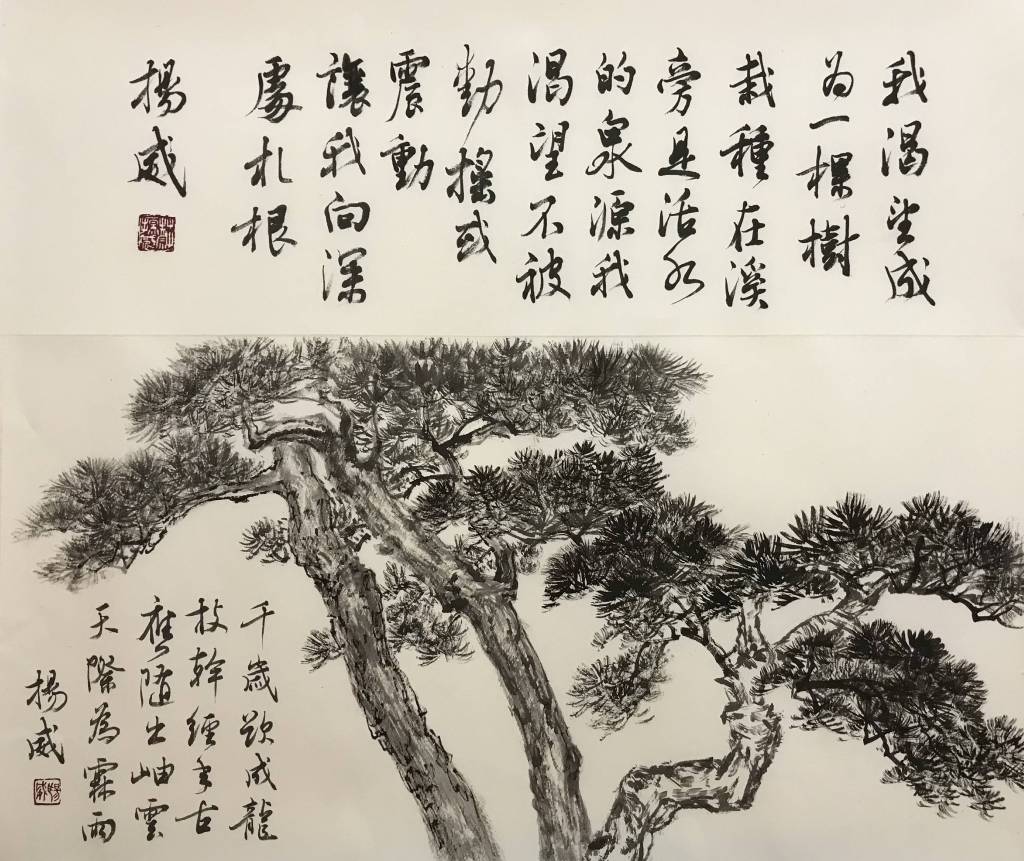 我渴望成
为一棵樹
栽種在溪
旁是活水
的泉源我
渴望不被
動搖或
震動
讓我向深
處札根
揚威
千歲欲成龍
枝幹經古
應隨出岫雲
天際為霖雨
揚威